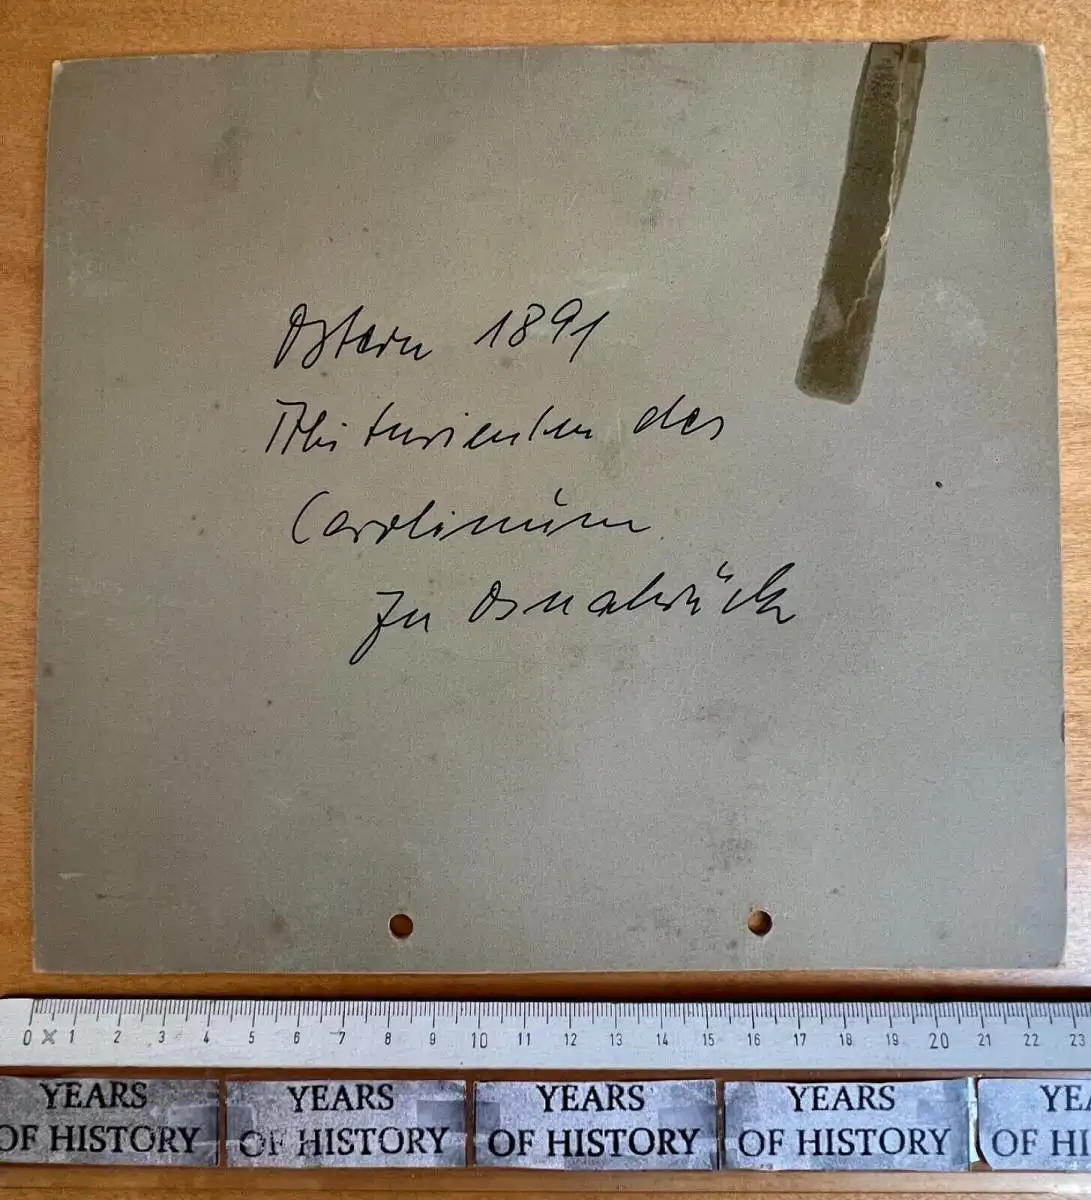 Ostern 1891
Abiturienten des
Carolinum
zu Osnabrück
0 1 2 3 4 5 6 7 8 9 10 11 12 13 14 15 16 17 18 19 20 21 22 23
YEARS YEARS YEARS YEARS YEA
OF HISTORY OF HISTORY OF HISTORY OF HISTORY OF HI